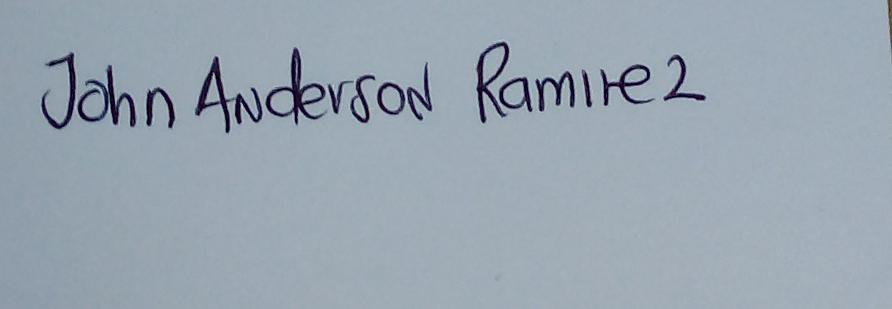 John Anderson Ramirez